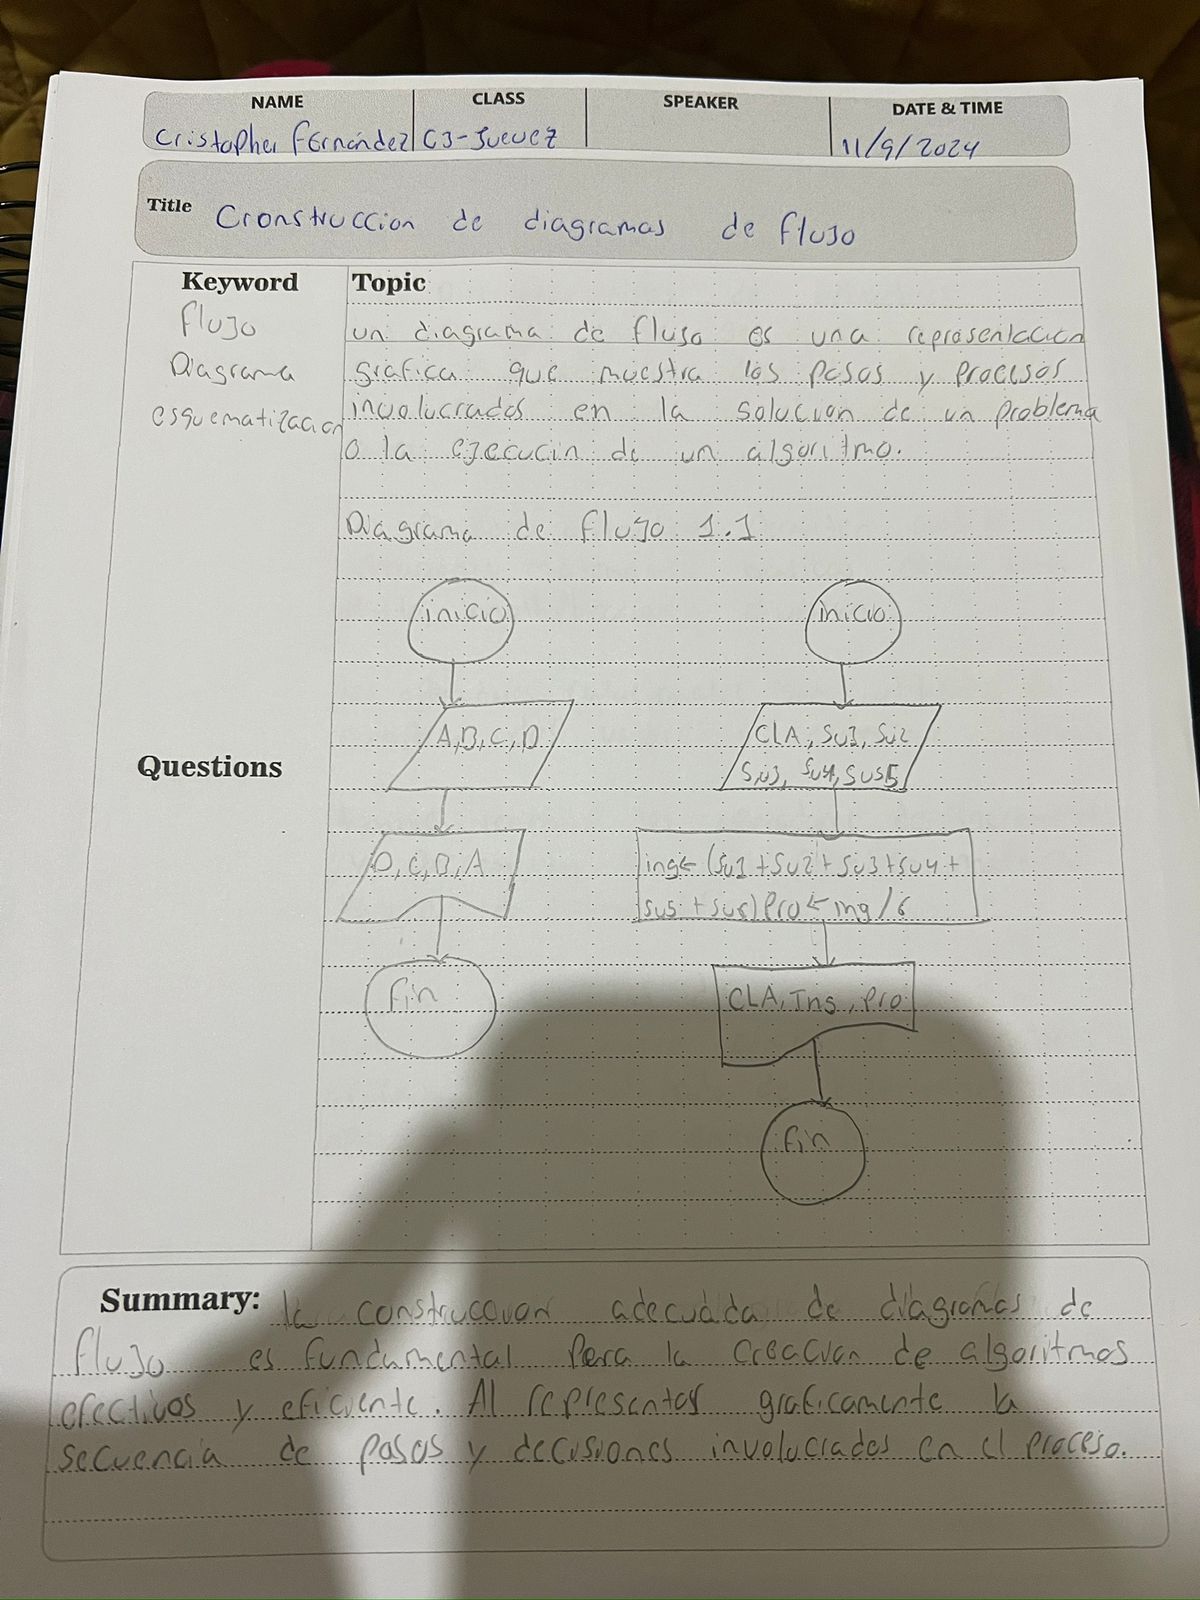 NAME CLASS SPEAKER DATE & TIME
Cristopher Fernández C3-Juevez 11/9/2024
Title Cronstruccion de diagramas de flujo
Keyword Topic
flujo
Diagrama
esquematizacion
un diagrama de flujo es una representacion
grafica que muestra los pasos y procesos
involucrados en la solucion de un problema
o la ejecucin de un algoritmo.
Diagrama de flujo 1.1
inicio
A,B,C,D
D,C,B,A
fin
inicio
CLA, Su1, Su2
Su3, Su4, Sus5
ing← (Su1+Su2+Su3+Su4+
Su5+Sus)Pro←ing/6
CLA, Ing, Pro
fin
Questions
Summary: la construccion adecuada de diagramas de
flujo es fundamental para la creacion de algoritmos
efectivos y eficiente. Al representar graficamente la
secuencia de pasos y decisiones involucrados en el proceso.